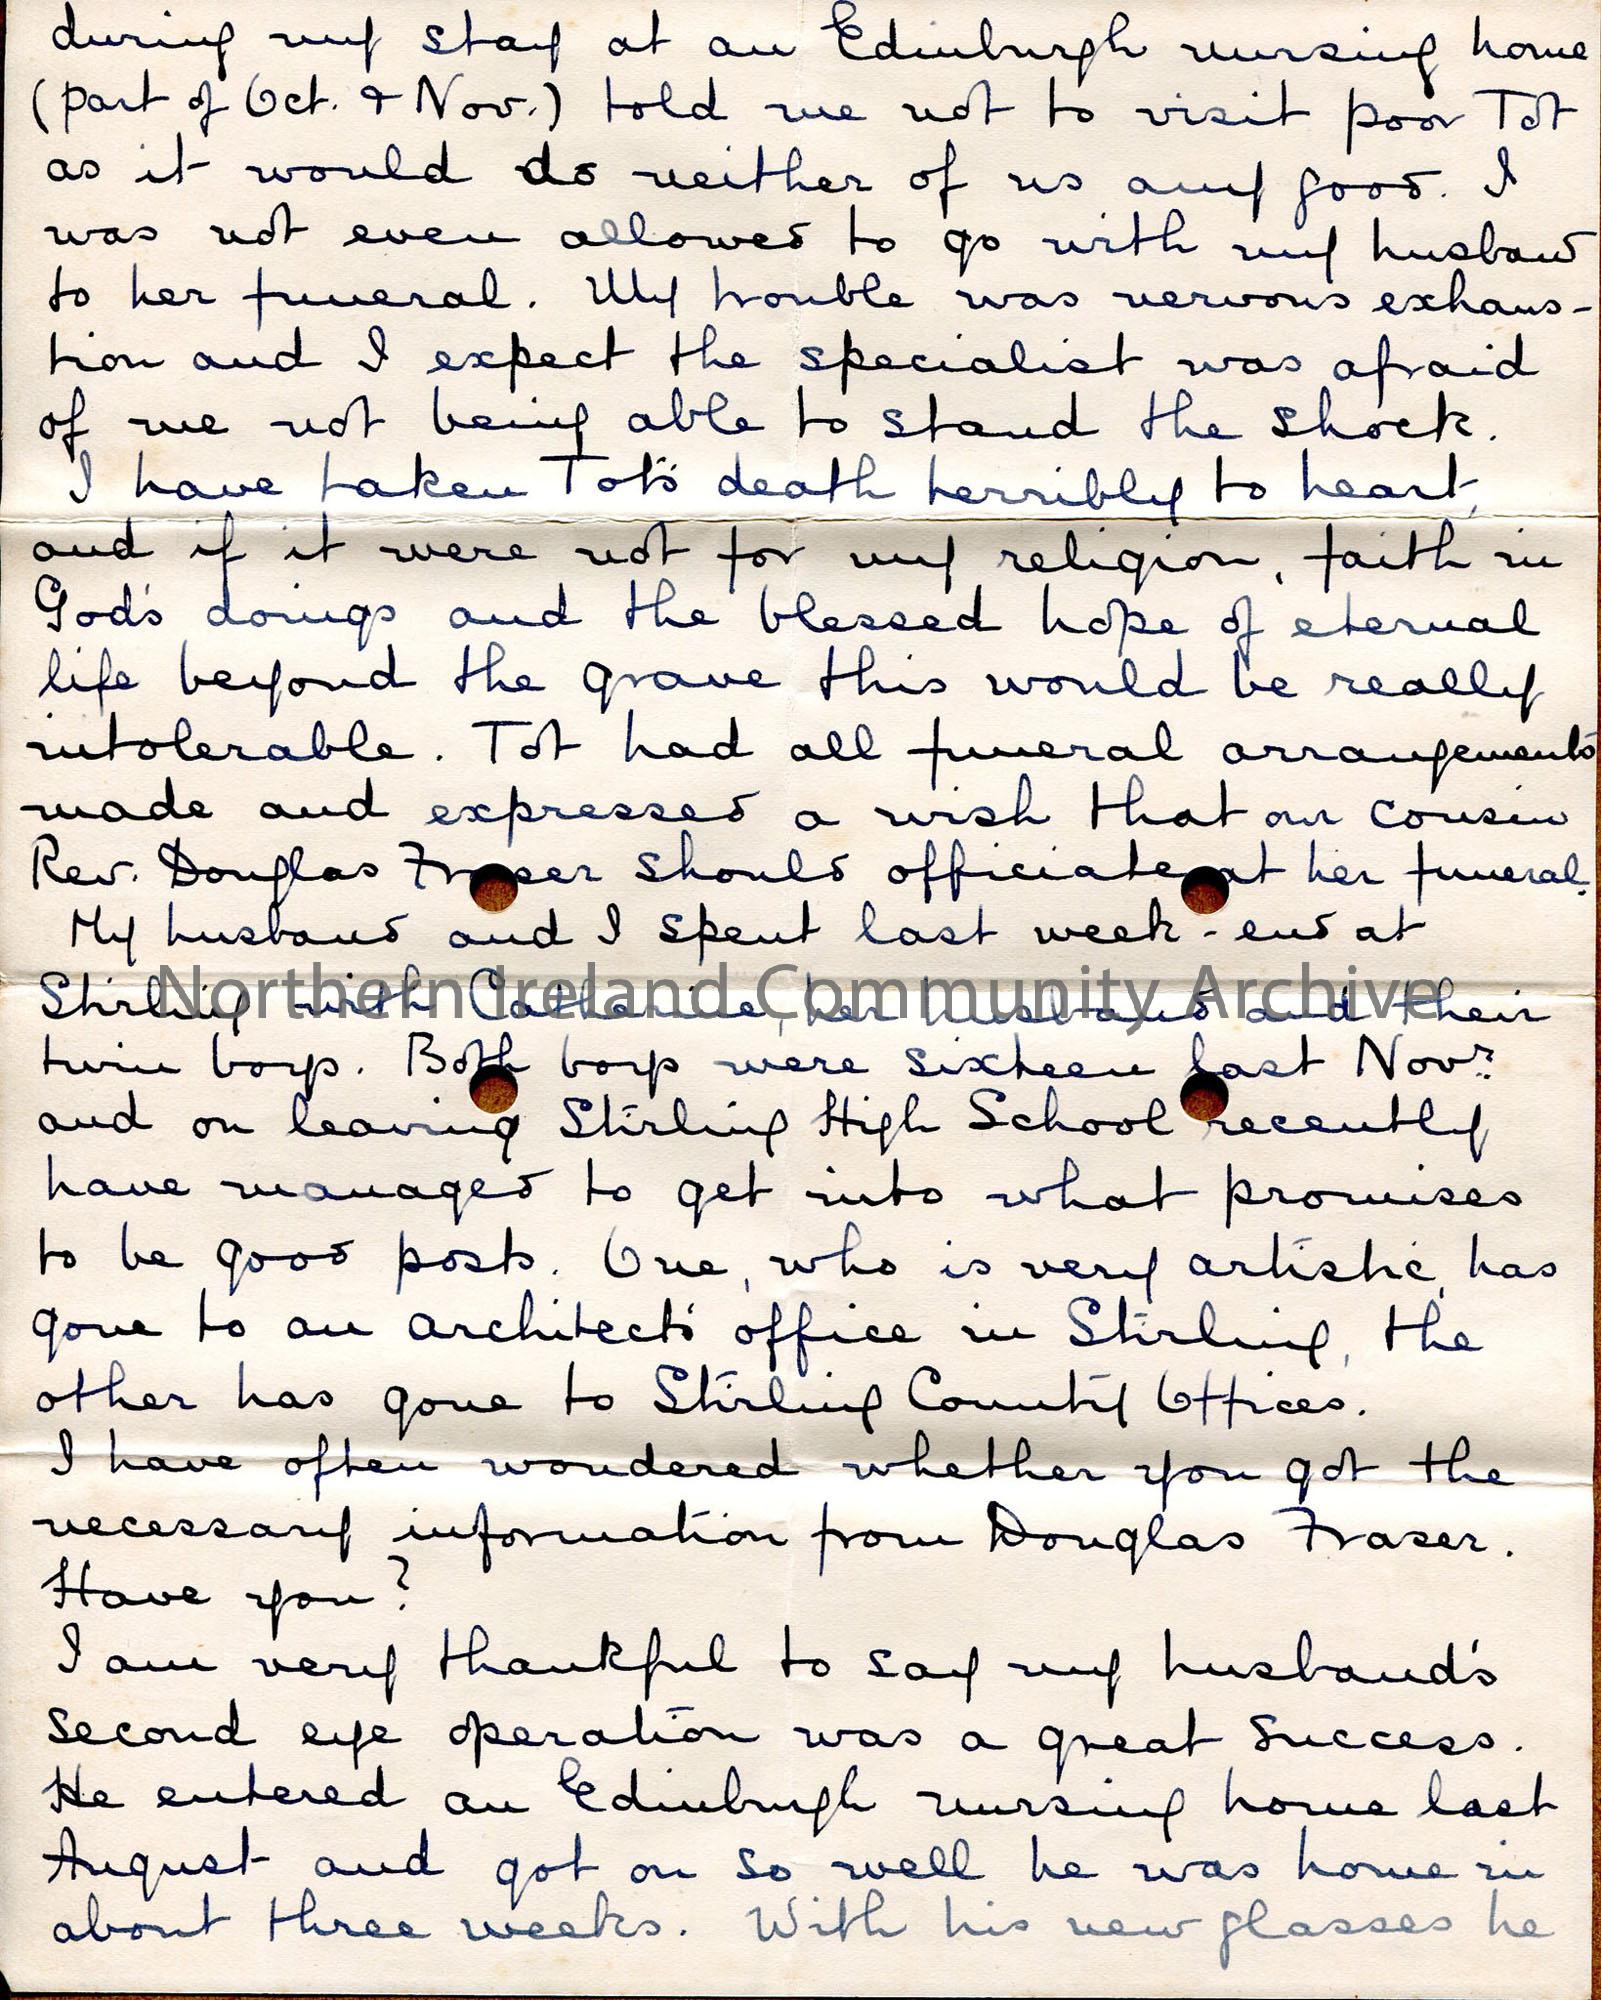 during my stay at an Edinburgh nursing home
(part of Oct. & Nov.) told me not to visit poor Tot
as it would do neither of us any good. I
was not even allowed to go with my husband
to her funeral. My trouble was nervous exhaus-
tion and I expect the specialist was afraid
of me not being able to stand the shock.
I have taken Tot's death terribly to heart,
and if it were not for my religion, faith in
God's doings and the blessed hope of eternal
life beyond the grave this would be really
intolerable. Tot had all funeral arrangements
made and expressed a wish that our cousin
Rev. Douglas Fraser should officiate at her funeral.
My husband and I spent last week-end at
Stirling with Catherine, her husband and their
Northern Ireland Community Archive
twin boys. Both boys were sixteen last Novr.
and on leaving Stirling High School recently
have managed to get into what promises
to be good posts. One, who is very artistic, has
gone to an architect's office in Stirling, the
other has gone to Stirling County Offices.
I have often wondered whether you got the
necessary information from Douglas Fraser.
Have you?
I am very thankful to say my husband's
second eye operation was a great success.
He entered an Edinburgh nursing home last
August and got on so well he was home in
about three weeks. With his new glasses he